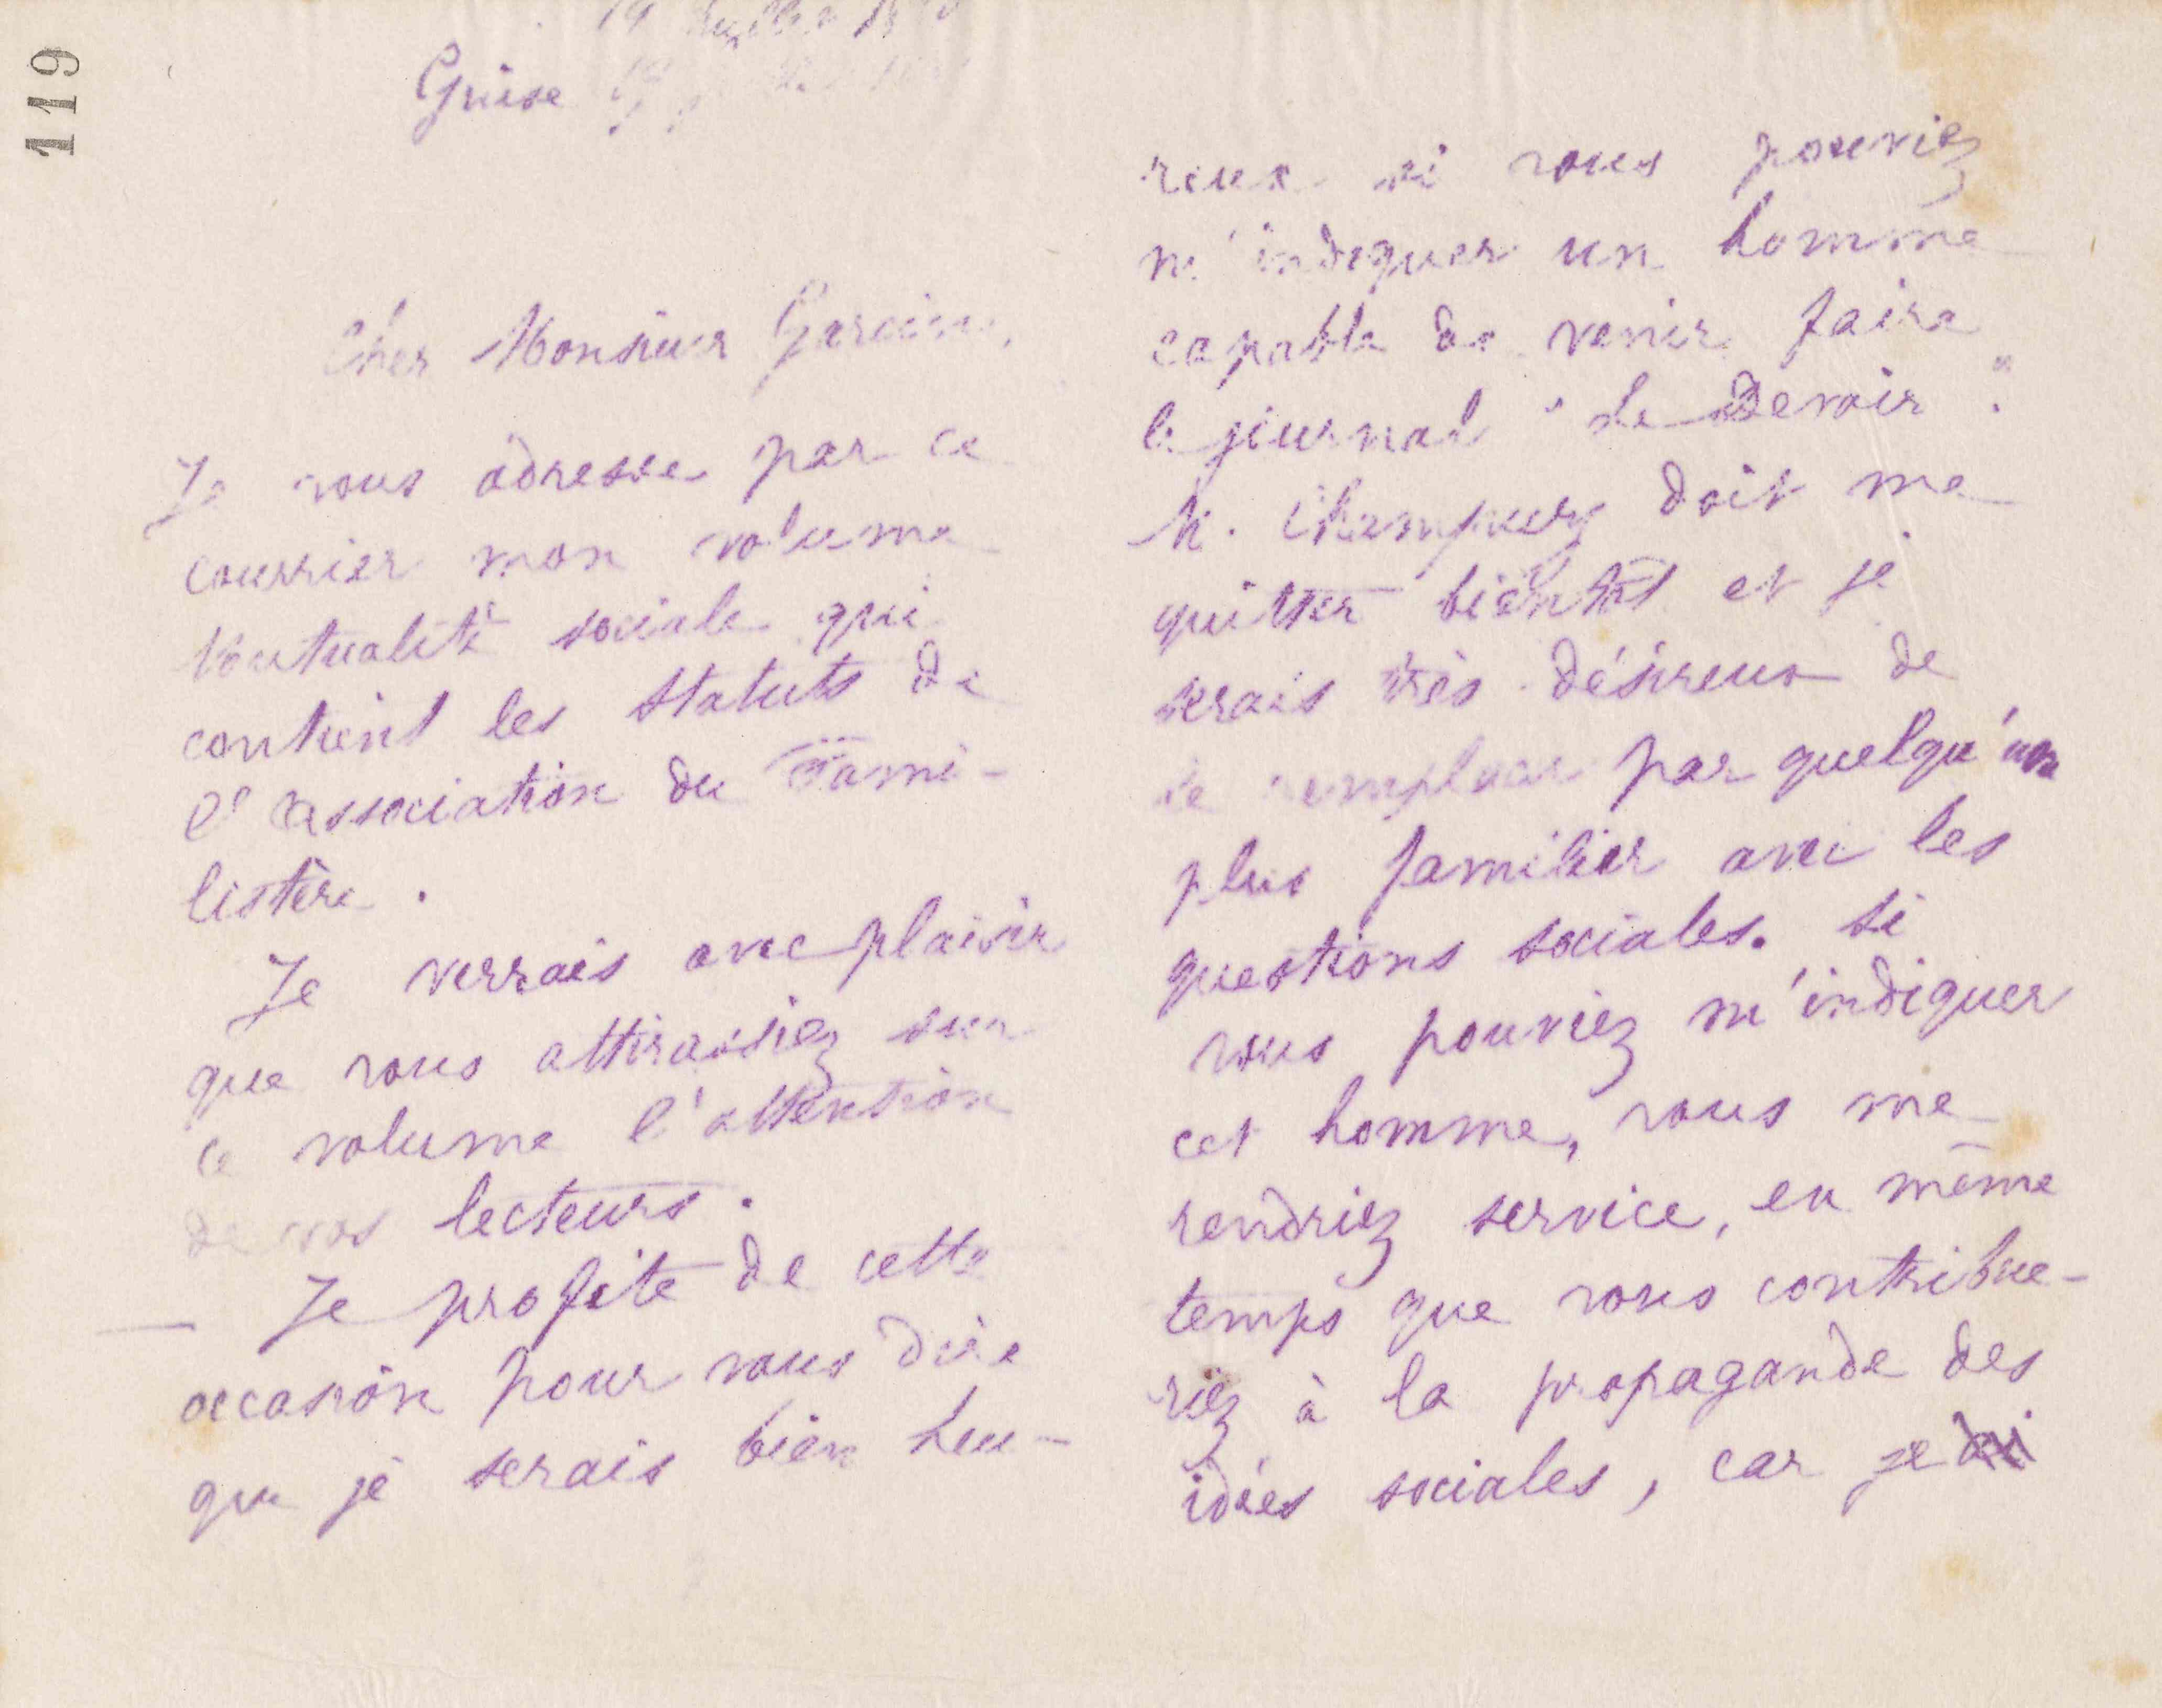 119
Guise 19 juillet
Cher Monsieur Garcin,
Je vous adresse par ce
courrier mon volume
Mutualité sociale qui
contient les statuts de
l'association du Fami-
listère.
Je verrais avec plaisir
que vous attirassiez sur
ce volume l'attention
de vos lecteurs.
— Je profite de cette
occasion pour vous dire
que je serais bien heu-
reux si vous pouviez
m'indiquer un homme
capable de venir faire
le journal "Le Devoir".
M. Champury doit me
quitter bientôt et je
serais très désireux de
le remplacer par quelqu'un
plus familier avec les
questions sociales. Si
vous pouviez m'indiquer
cet homme, vous me
rendriez service, en même
temps que vous contribue-
riez à la propagande des
idées sociales, car je